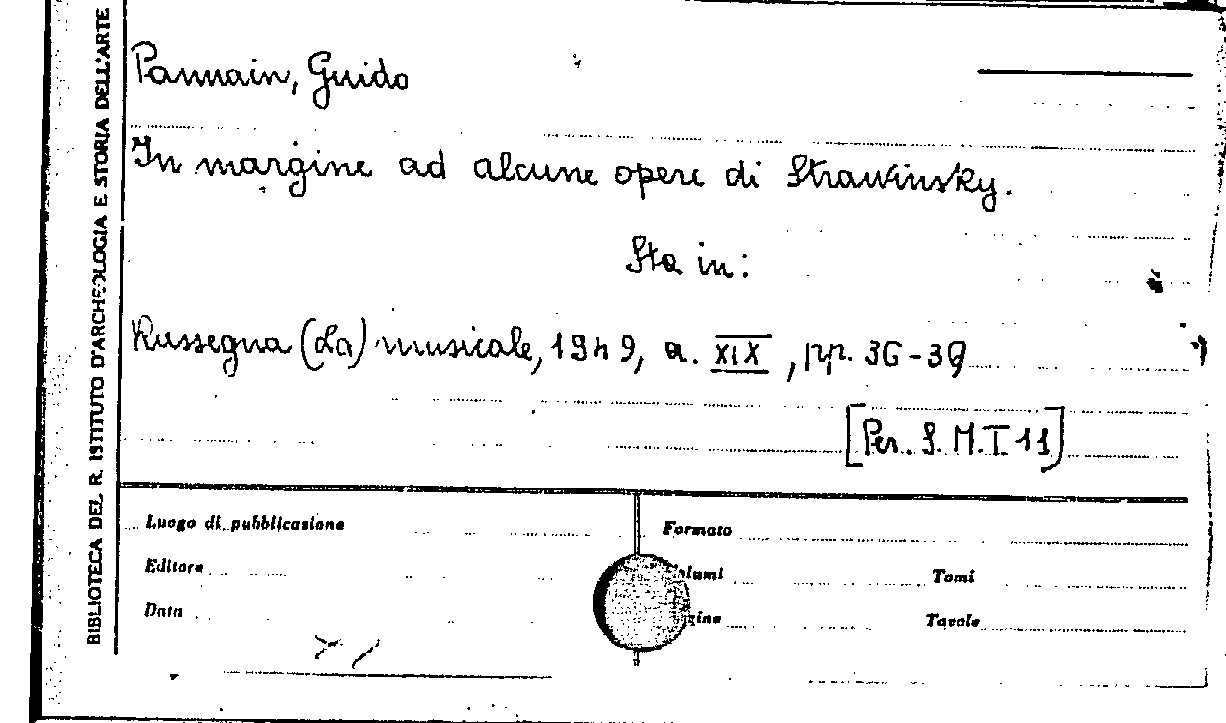 BIBLIOTECA DEL R. ISTITUTO D'ARCHEOLOGIA E STORIA DELL'ARTE
Pannain, Guido
In margine ad alcune opere di Strawinsky.
Sta in:
Rassegna (La) musicale, 1949, a. XIX, pp. 36-39
[Per. S. M. I 11]
Luogo di pubblicazione
Formato
Editore
Volumi
Tomi
Data
Pagine
Tavole